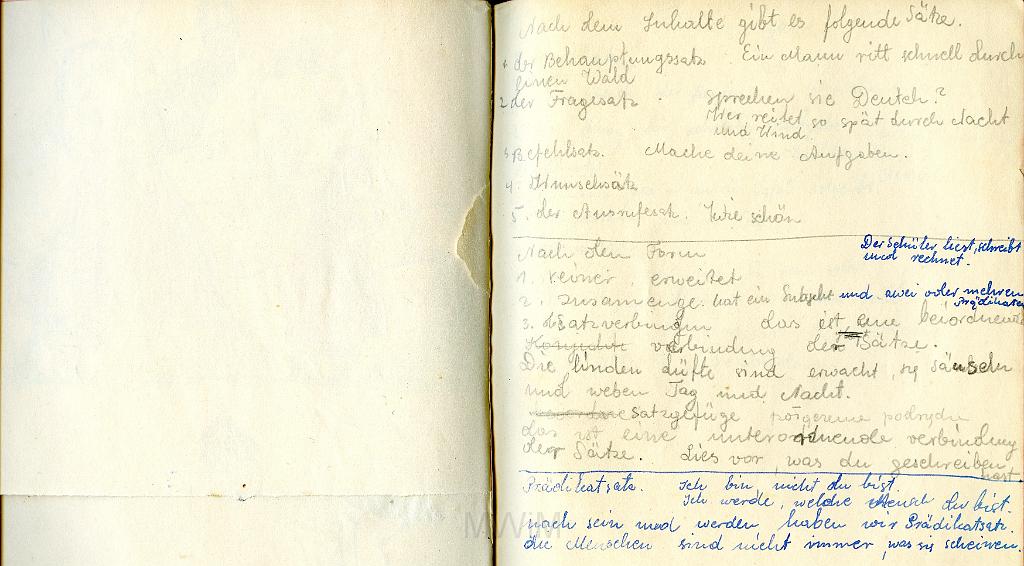 Nach dem Inhalte gibt es folgende Sätze.
1. der Behauptungssatz Ein Mann ritt schnell durch
einen Wald
2. der Fragesatz. Sprechen sie Deutch?
Wer reitet so spät durch Nacht
und Wind.
3. Befehlsatz. Mache deine Aufgaben.
4. Wunschsätz
5. der Ausrufesatz. Wie schön
Der Schüler liest, schreibt
und rechnet.
Nach der Form
1. reiner, erweitet
2. Zusamenge. hat ein Subjekt und zwei oder mehren
Prädikaten
3. Satzverbindung das ist eine beiordnende
verbindung der Sätze.
Die linden düfte sind erwacht, sie säuseln
und weben Tag und Nacht.
Satzgefüge
das ist eine unterordnende verbindung
der Sätze. Lies vor, was du geschreiben
hast.
Prädikatsatz. Ich bin, nicht du bist.
Ich werde, welche Mensch du bist.
nach sein und werden haben wir Prädikatsatz.
die Menschen sind nicht immer, was sie scheinen.
MWiM